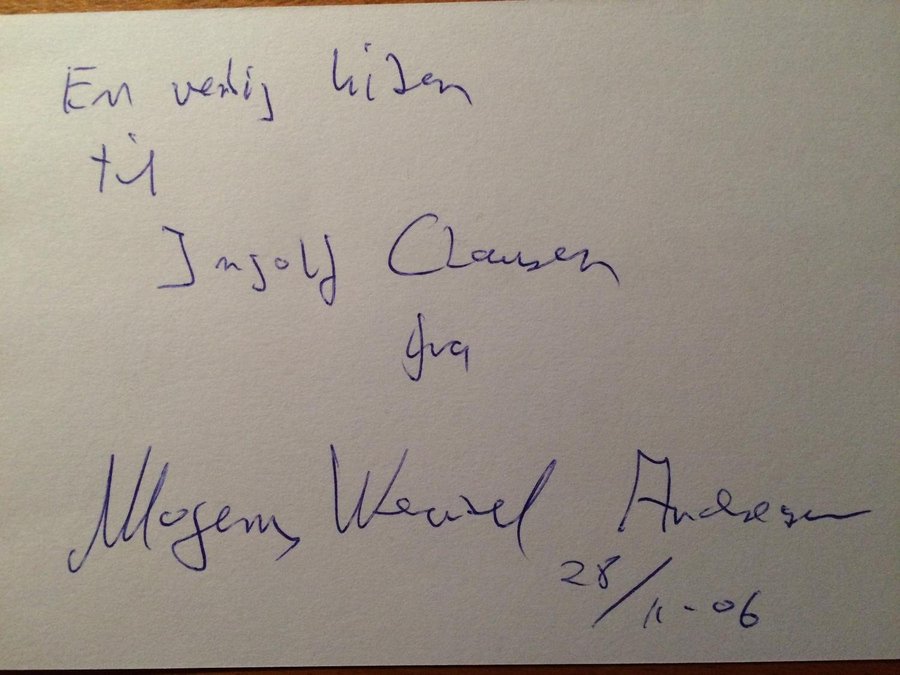 En venlig hilsen
til
Ingolf Clausen
fra
Mogens Wenzel Andreasen
28/11-06